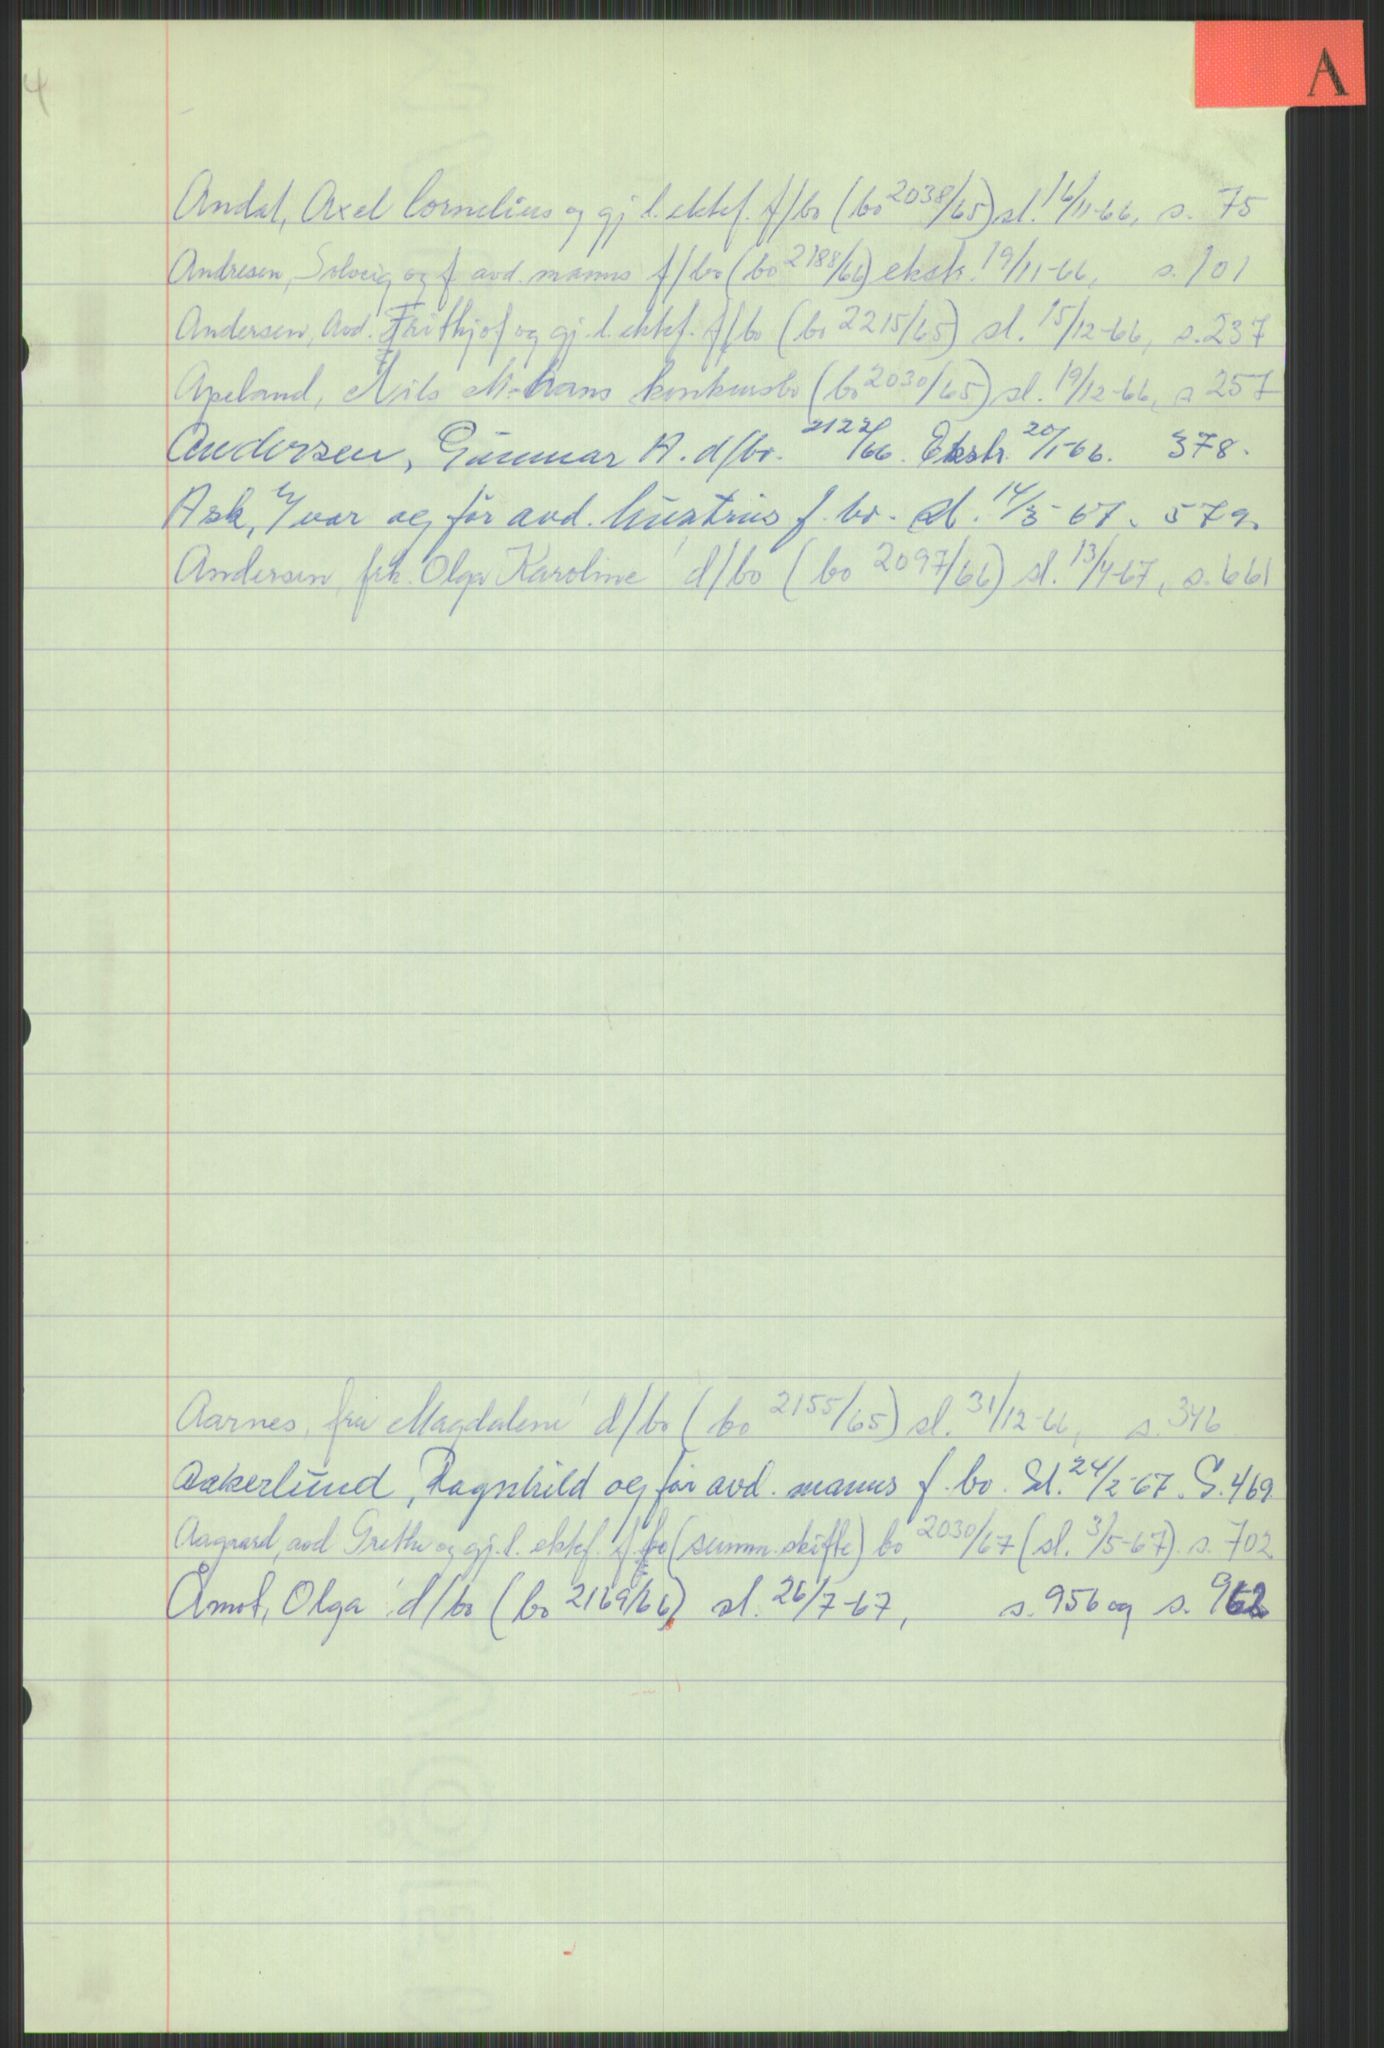 A
4
Andal, Axel Cornelius og gj.l. ektef. f/bo (bo 2038/65) sl. 16/11-66, s. 75
Andresen, Solveig og f avd. manns f/bo (bo 2188/66) ekstr. 19/11-66, s. 101
Andersen, Avd. Frithjof og gj.l. ektef. f/bo (bo 2215/65) sl. 15/12-66, s. 237
Apeland, Nils M. hans konkursbo (bo 2030/65) sl. 19/12-66, s 257
Andersen, Gunnar A. d/bo. 2122/66. Ekstr. 20/1-66. 378.
Ask, Yvar og for avd. hustrus f. bo. sl. 14/3-67. 579.
Andersen, frk. Olga Karoline' d/bo (bo 2097/66) sl. 13/4-67, s. 661
Aarnes, fru Magdalene' d/bo (bo 2155/65) sl. 31/12-66, s. 346
Aakerlund, Ragnhild og for avd. manns f. bo. Sl. 24/2-67. S. 469
Aagaard, avd Grethe og gj.l. ektef. f.bo (summ. skifte) bo 2030/67 (sl. 3/5-67). s. 702
Åmot, Olga' d/bo (bo 2169/66) sl. 26/7-67, s. 956 og s. 962